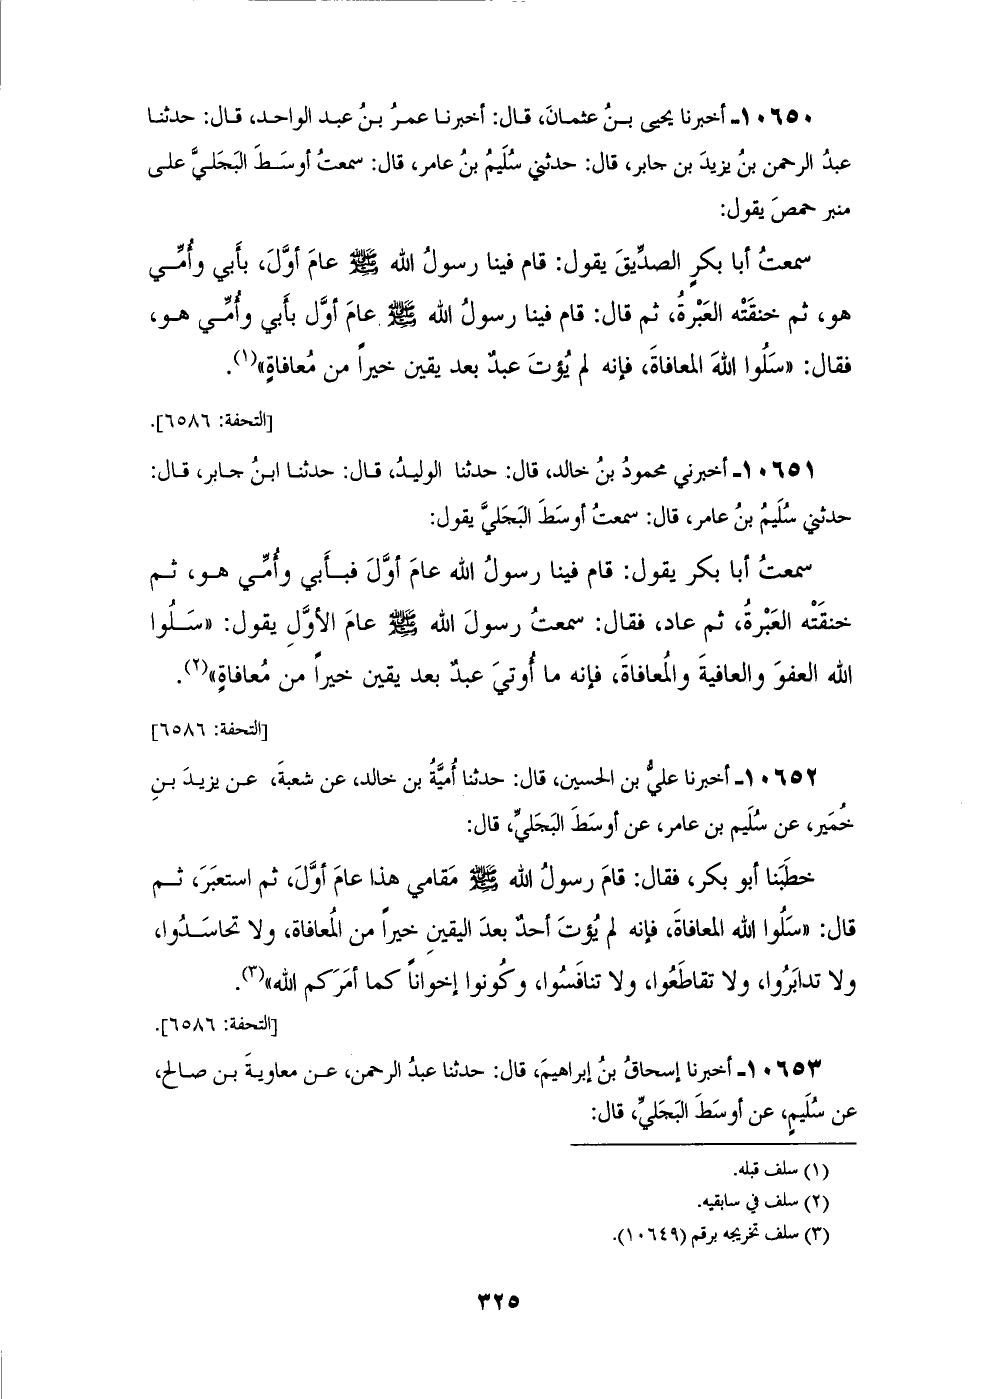 ١٠٦٥٠ـ أخبرنا يحيى بـنُ عثمـانَ، قـال: أخبرنـا عمـرُ بـنُ عبـد الواحـد، قـال: حدثنـا
عبدُ الرحمن بنُ يزيدَ بن جابر، قال: حدثني سُلَيمُ بنُ عامر، قال: سمعتُ أوسَـطَ البَجَلـيَّ علـى
منبر حمصَ يقول:
سمعتُ أبا بكرٍ الصدِّيقَ يقول: قام فينا رسولُ الله ﷺ عامَ أوَّلَ، بأَبي وأُمِّـي
هو، ثم خنقَتْه العَبْرةُ، ثم قال: قام فينا رسولُ الله ﷺ عامَ أوَّل بأَبي وأُمِّـي هـو،
فقال: «سَلُوا اللهَ المعافاةَ، فإنه لم يُؤتَ عبدٌ بعد يقين خيراً من مُعافاةٍ»(١).
[التحفة: ٦٥٨٦].
١٠٦٥١ـ أخبرني محمودُ بنُ خالد، قال: حدثنا الوليدُ، قـال: حدثنـا ابـنُ جـابر، قـال:
حدثني سُلَيمُ بنُ عامر، قال: سمعتُ أوسَطَ البَجَليَّ يقول:
سمعتُ أبا بكر يقول: قام فينا رسولُ الله عامَ أوَّلَ فبـأَبي وأُمِّـي هـو، ثـم
خنقَتْه العَبْرةُ، ثم عاد، فقال: سمعتُ رسولَ الله ﷺ عامَ الأوَّلِ يقول: «سَـلُوا
الله العفوَ والعافيةَ والمُعافاةَ، فإنه ما أُوتيَ عبدٌ بعد يقين خيراً من مُعافاةٍ»(٢).
[التحفة: ٦٥٨٦]
١٠٦٥٢ـ أخبرنا عليُّ بن الحسين، قال: حدثنا أُميَّةُ بن خالد، عن شعبةَ، عـن يزيـدَ بـنِ
خُمَير، عن سُلَيم بن عامر، عن أوسَطَ البَجَليِّ، قال:
خطَبَنا أبو بكر، فقال: قامَ رسولُ الله ﷺ مَقامي هذا عامَ أوَّلَ، ثم استعبَرَ، ثـم
قال: «سَلُوا الله المعافاةَ، فإنه لم يُؤتَ أحدٌ بعدَ اليقينِ خيراً من المُعافاة، ولا تحاسَـدُوا،
ولا تدابَرُوا، ولا تقاطَعُوا، ولا تنافَسُوا، وكُونوا إخواناً كما أمَرَكم الله»(٣).
[التحفة: ٦٥٨٦].
١٠٦٥٣ـ أخبرنا إسحاقُ بنُ إبراهيمَ، قال: حدثنا عبدُ الرحمن، عـن معاويـةَ بـن صـالح،
عن سُلَيمٍ، عن أوسَطَ البَجَليِّ، قال:
(١) سلف قبله.
(٢) سلف في سابقيه.
(٣) سلف تخريجه برقم (١٠٦٤٩).
٣٢٥